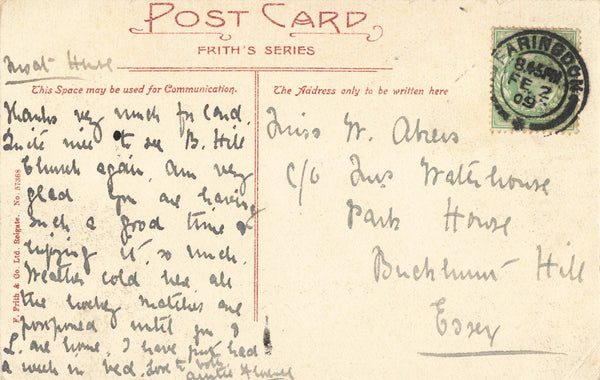 POST CARD
FRITH'S SERIES
Moat House
This Space may be used for Communication.
Thanks very much for card.
Quite nice to see B. Hill
Church again, am very
glad you are having
such a good time &
enjoying it so much.
Weather cold here all
the hockey matches are
postponed until you &
L. are home. I have just had
a week in bed. Love to both
Auntie
F. Frith & Co. Ltd. Reigate. No. 57368
The Address only to be written here
Miss W. Akers
c/o Mrs Waterhouse
Park House
Buckhurst Hill
Essex
FARINGDON
8.45PM
FE 2
09